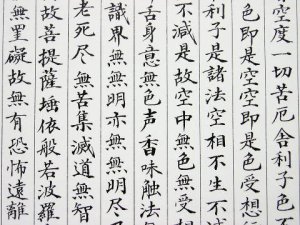 空度一切苦厄舎利子色不
色即是空空即是色受想行
利子是諸法空相不生不滅
不減是故空中無色無受想
舌身意無色声香味触法無
識界無無明亦無無明尽乃
老死尽無苦集滅道無智
故菩提薩埵依般若波羅
無罣礙故無有恐怖遠離